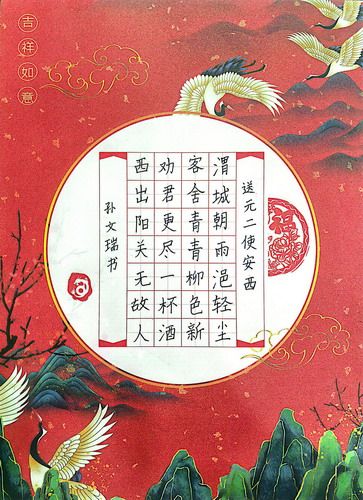 吉祥如意
送元二使安西
渭城朝雨浥轻尘
客舍青青柳色新
劝君更尽一杯酒
西出阳关无故人
孙文瑞书
福